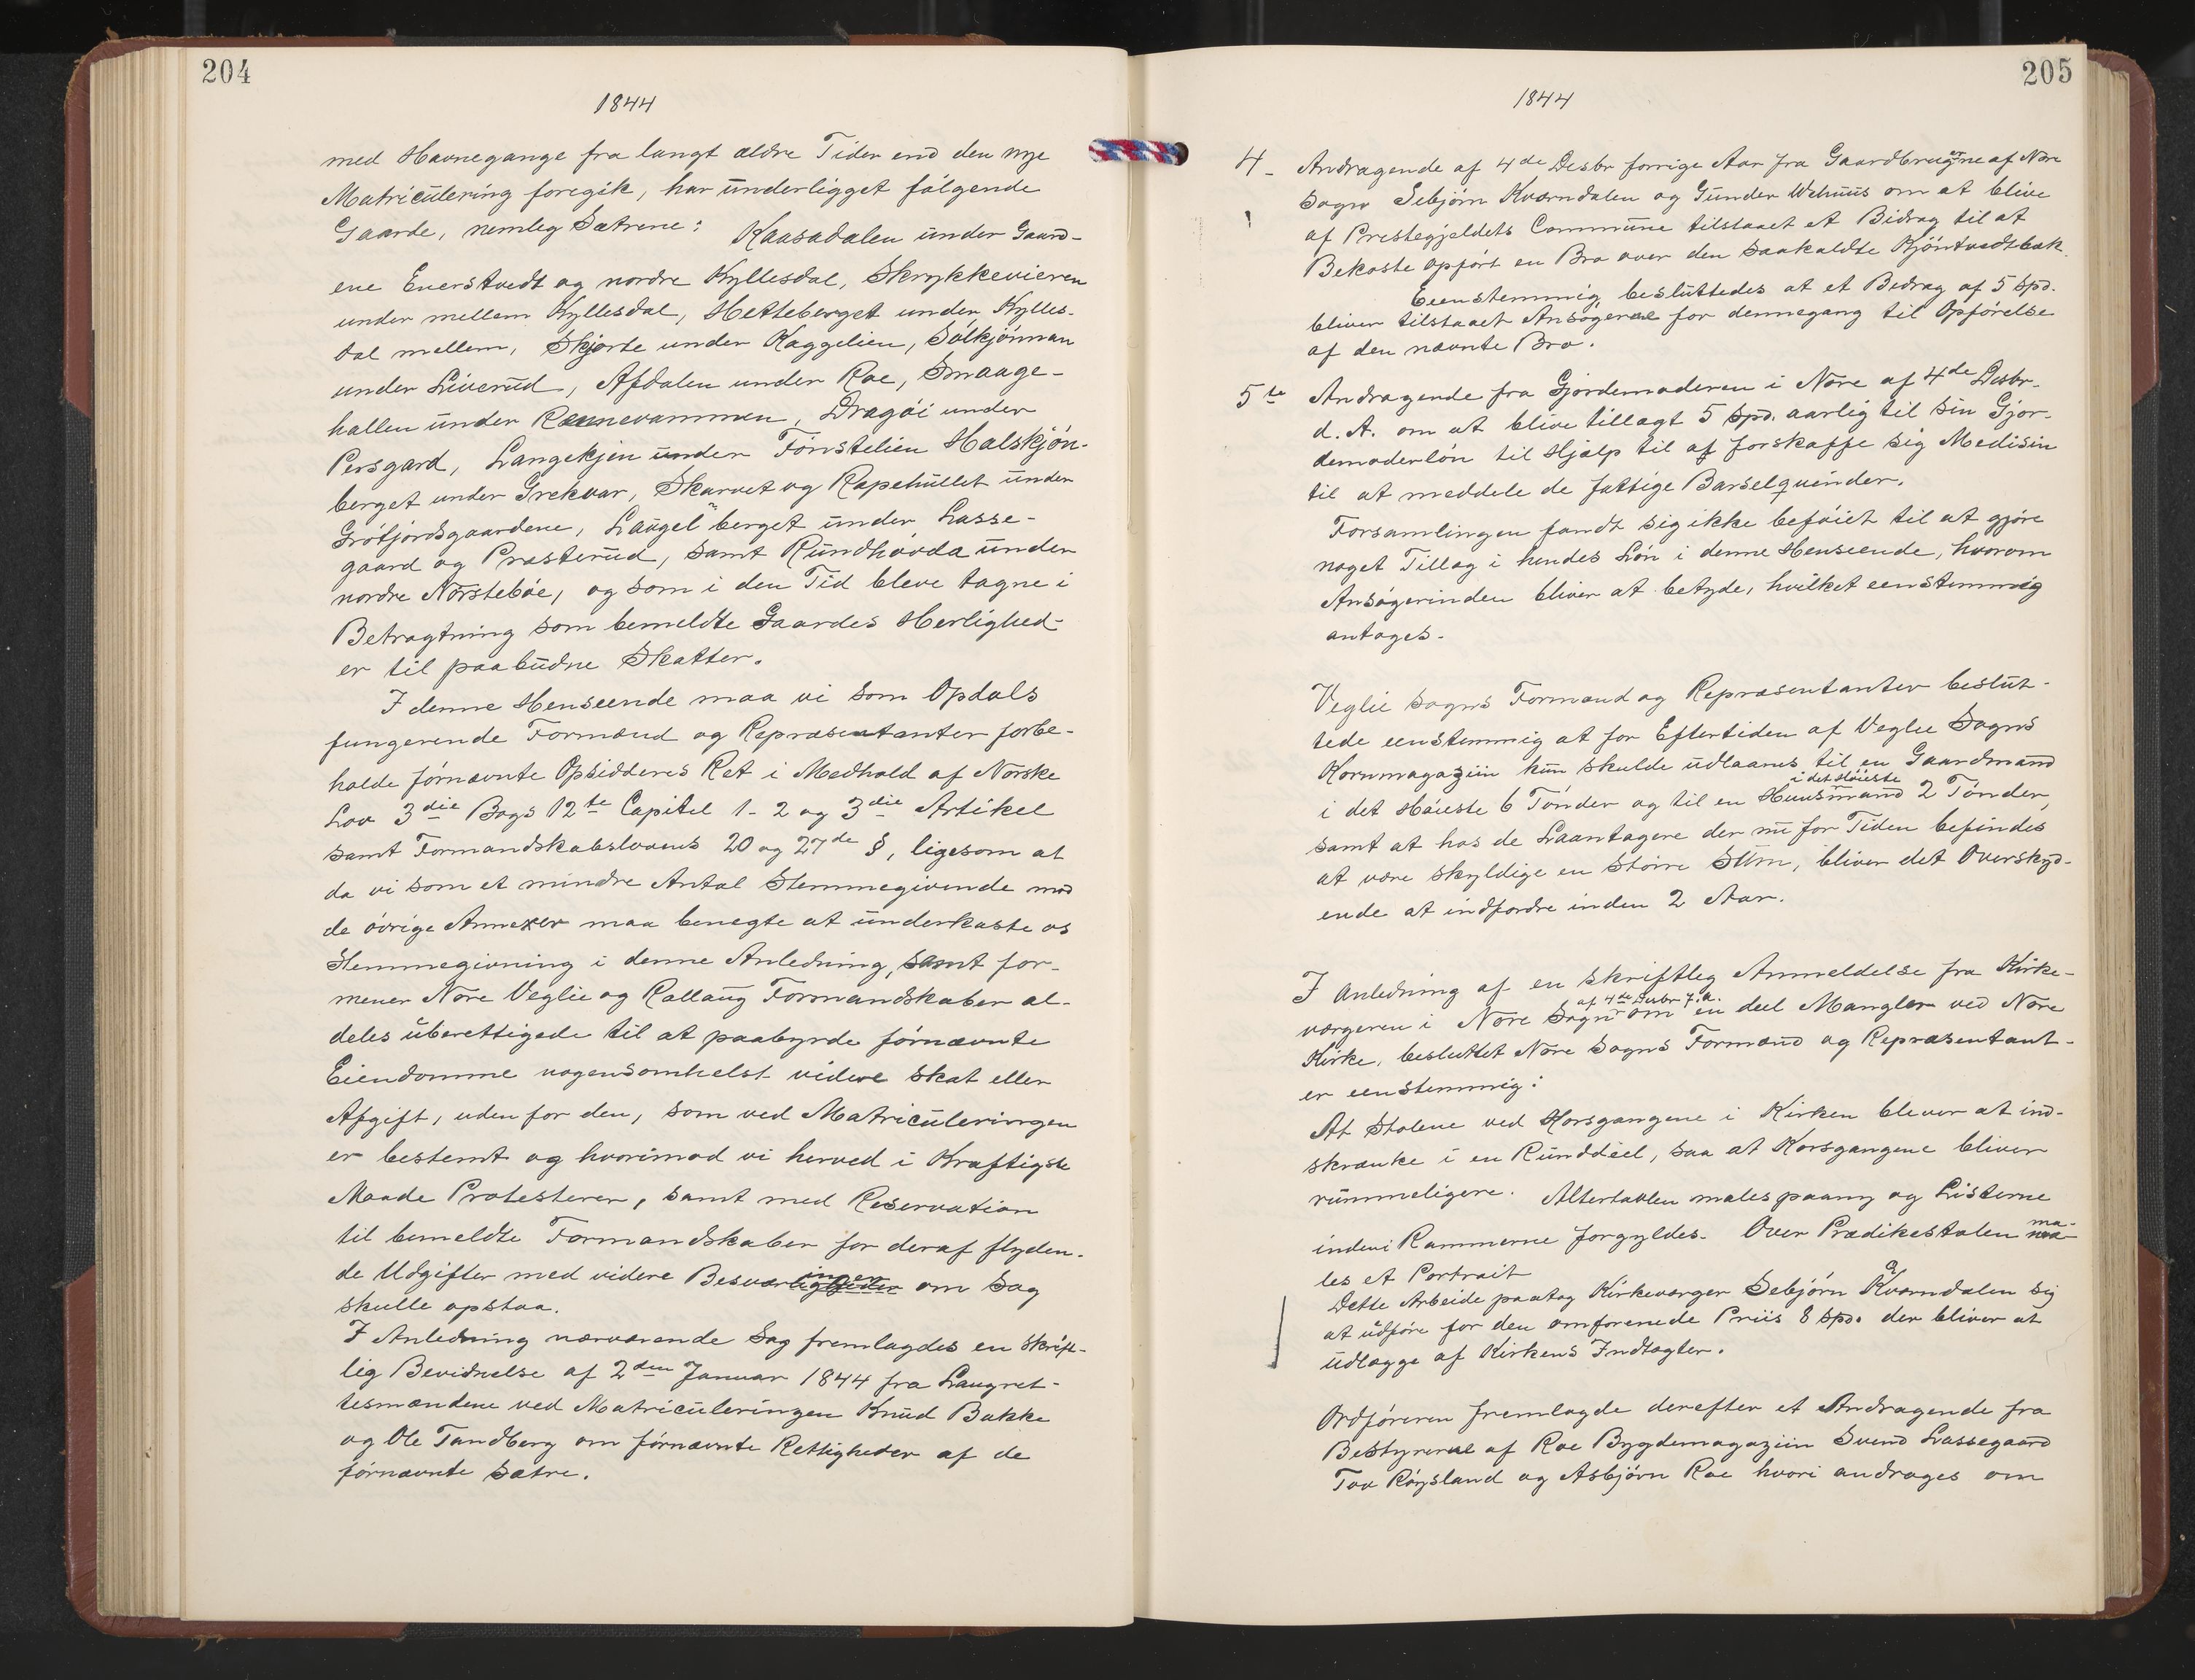 204
1844
med Havnegange fra langt ældre Tider end den nye
Matriculering foregik, har underligget følgende
Gaarde, nemleg Sætrene: Kaasadalen under Gaard-
ene Enerstvedt og nordre Kyllesdal, Skrykkevieren
under mellem Kyllesdal, Hetteberget under Kylles-
dal mellem, Skjorte under Kaggelien, Sólkjónnan
under Liverud, Afdalen under Roe, Smaage-
hallen under Rennevammen, Dragói under
Persgard, Langekjen under Fónstelien Halskjón-
berget under Grekvar, Skarvet og Rapehullet under
Grótfjordsgaardene, Laugel"berget under Lasse-
gaard og Prasterud, samt Rundhóvda under
nordre Nórstebóe, og som i den Tid bleve tagne i
Betragtning som bemeldte Gaardes Herlighed-
er til paabudne Skatter.
I denne Henseende maa vi som Opdals
fungerende Formænd og Repræsentanter forbe-
holde fórnævnte Opsidderes Ret i Medhold af Norske
Lov 3die Bogs 12te Capitel 1- 2 og 3die Artikel
samt Formandskabslovens 20 og 27de §, ligesom at
da vi som et mindre Antal Stemmegivende mod
de óvrige Annexer maa benegte at underkaste os
Stemmegivning i denne Anledning, samt for-
mener Nore Veglie og Rollaug Formandskaber al-
deles uberettigede til at paabyrde fórnævnte
Eiendomme nogensomhelst videre skat eller
Afgift, uden for den, som ved Matriculeringen
er bestemt og hvorimod vi herved i Kraftigste
Maade Protesterer, samt med Reservation
til bemeldte Formandskaber for deraf flyden-
de Udgifter med videre Besværligheder ingen om Sag
skulle opstaa.
I Anledning nærværende Sag fremlagdes en skrift-
lig Bevidnelse af 2den Januar 1844 fra Laugret-
tesmændene ved Matriculeringen Knud Bakke
og Ole Tandberg om fórnævnte Rettigheder af de
fórnævnte Sætre.
205
1844
4- Andragende af 4de Desbr forrige Aar fra Gaardbrugerne af Nore
Sogn Sebjórn Kværndalen og Gunder Wehuus om at blive
af Prestegjeldets Commune tilstaaet et Bidrag til at
Bekoste opfórt en Bro over den saakaldte Kjóntvedtbæk.
Eenstemmig besluttedes at et Bedrag af 5 Spd.
bliver tilstaaet Ansógerne for dennegang til Opfórelse
af den nævnte Bro.
5te Andragende fra Gjordemoderen i Nore af 4de Desbr.
d. A. om at blive tillagt 5 Spd. aarlig til sin Gjor-
demoderlón til Hjælp til at forskaffe sig Medisin
til at meddele de fattige Barselqvinder.
Forsamlingen fandt sig ikke befóiet til at gjóre
noget Tillæg i hendes Lón i denne Henseende, hvorom
Ansógerinden bliver at betyde, hvilket eenstemmig
antoges.
Veglie Sogns Formænd og Repræsentanter beslut-
tede eenstemmig at for Eftertiden af Veglie Sogns
Kornmagaziin kun skulde udlaanes til en Gaardmand
i det Hóieste 6 Tónder og til en Huusmand i det Hóieste 2 Tónder,
samt at hos de Laantagere der nu for Tiden befindes
at være skyldige en stórre Sum, bliver det Overskyd-
ende at indfordre inden 2 Aar.
I Anledning af en skriftleg Anmeldelse fra Kirke-
værgeren i Nore Sogn af 4de Desbr f.a. om en deel Mangler ved Nore
Kirke, besluttet Nore Sogns Formænd og Repræsentant-
er eenstemmig:
At Stolene ved Korsgangene i Kirken blever at ind-
skrænke i en Runddeel, saa at Korsgangene bliver
rummeligere. Altertavlen males paany og Listerne
inden i Rammerne forgyldes. Over Prædikestolen ma-
les et Portrait
Dette Arbeide paatog Kirkeværger Sebjórn Kværndalen sig
at udfóre for den omforenede Priis 8 Spd. der bliver at
udlægge af Kirkens Indtægter.
Ordfóreren fremlagde derefter et Andragende fra
Bestyrerne af Roe Bygdemagaziin Svend Lassegaard
Tov Róysland og Asbjórn Roe hvori andrages om